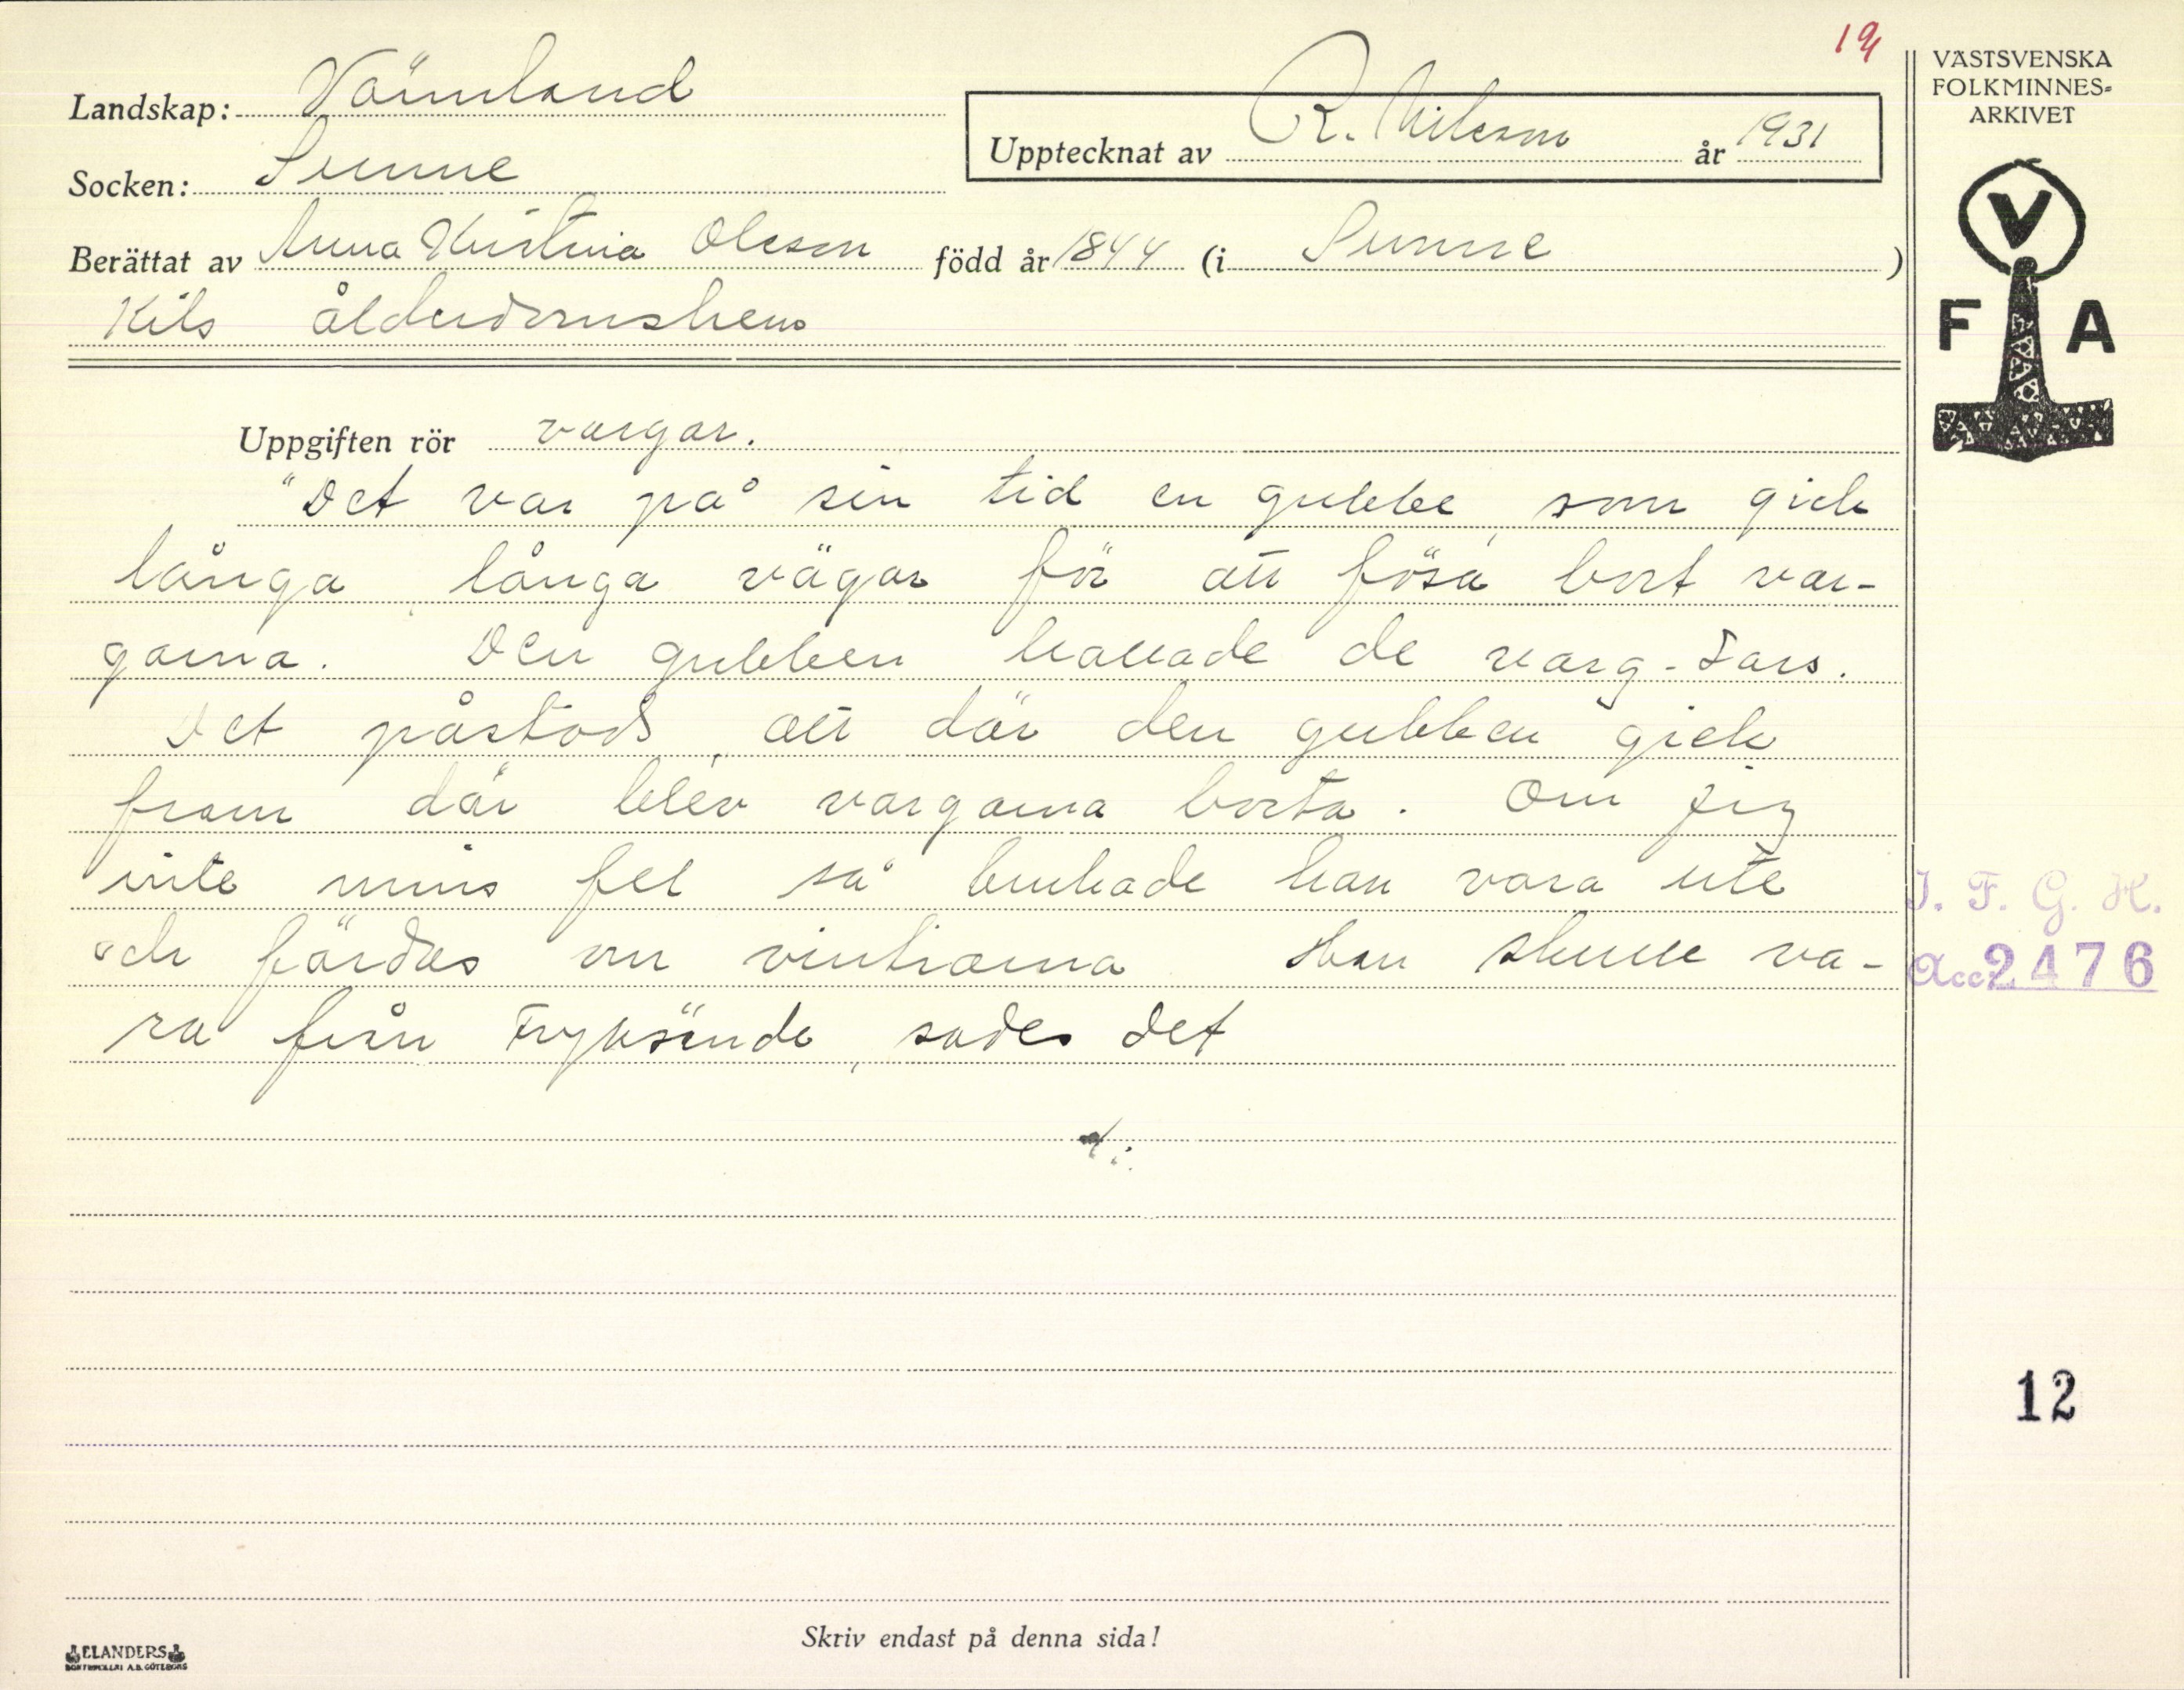 19
VÄSTSVENSKA
FOLKMINNES-
ARKIVET
Landskap: Värmland
Upptecknat av R. Nilsson år 1931
Socken: Sunne
Berättat av Anna Kristina Olsson född år 1844 (i Sunne)
Kils ålderdomshem
V
F A
Uppgiften rör vargar.
"Det var på sin tid en gubbe, som gick
långa, långa vägar för att fösa bort var-
garna. Den gubben kallade de varg-Lars.
Det påstods, att där den gubben gick
fram där blev vargarna borta. Om jig
inte mins fel så brukade han vara ute
och färdas om vintrarna. Han skulle va-
ra från Fryksände, sades det
I. F. G. H.
Acc: 2476
12
Skriv endast på denna sida!
ELANDERS
BOKTRYCKERI A.B. GÖTEBORG